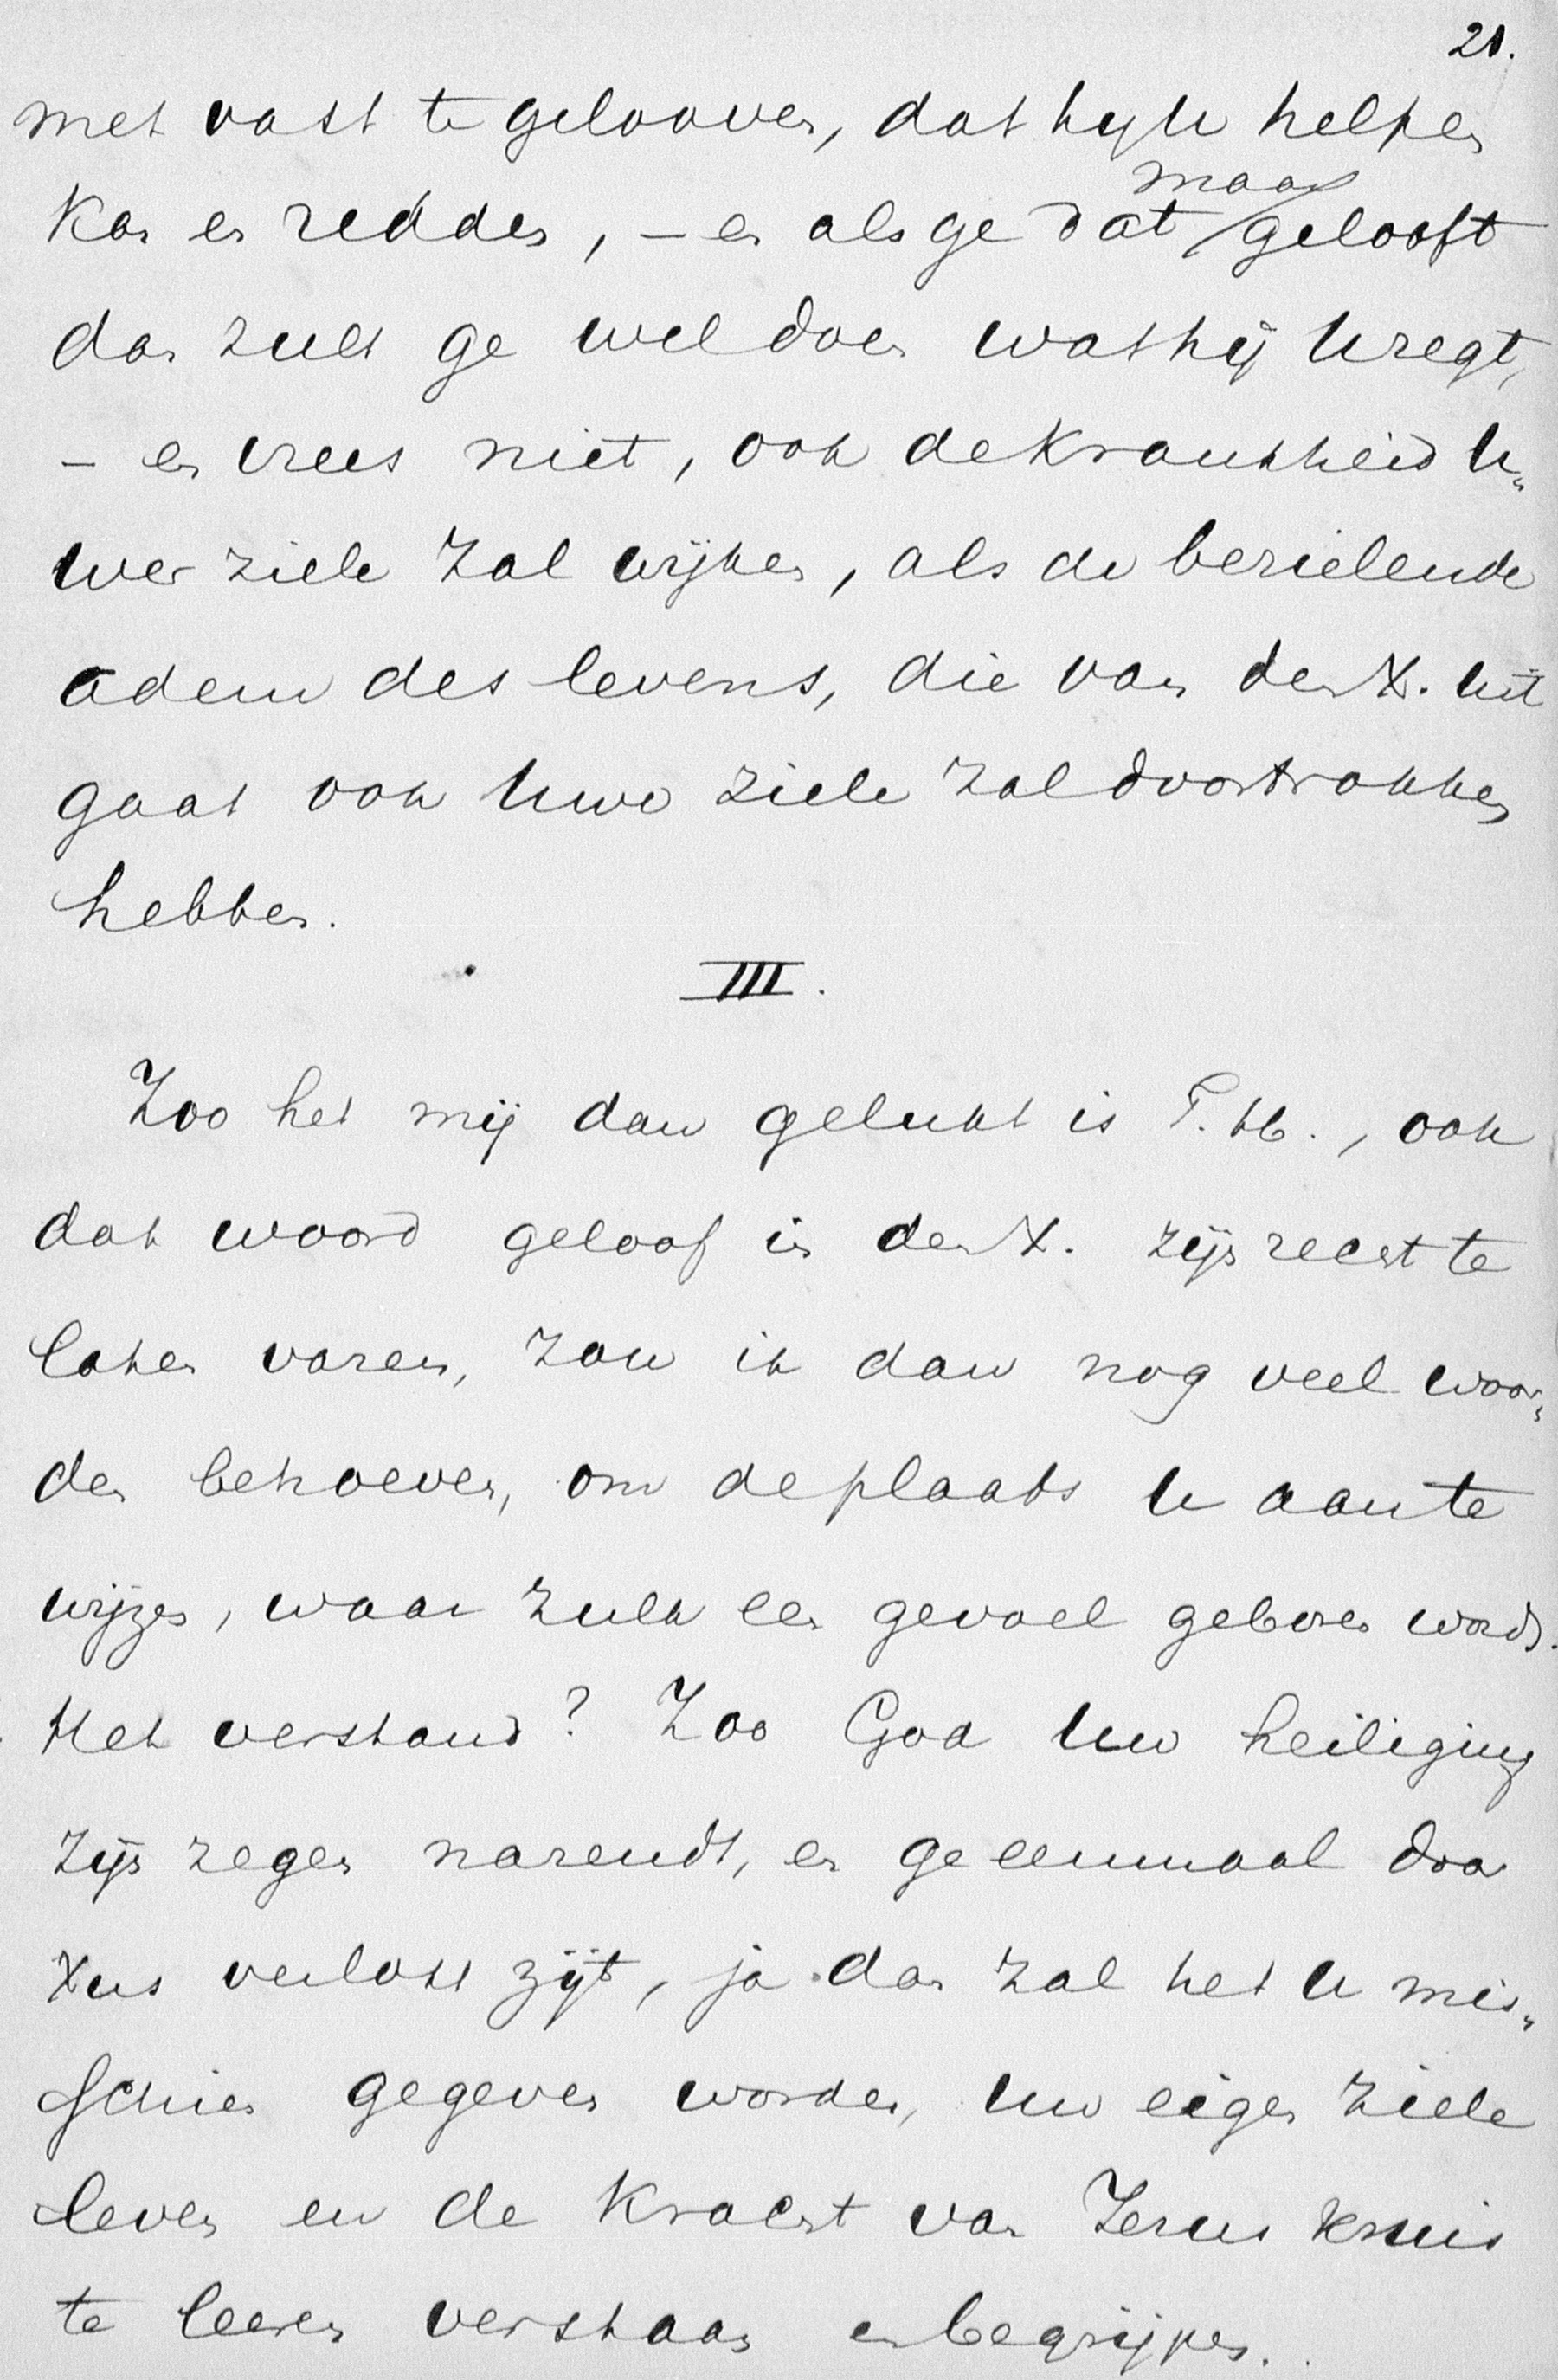 21.
met vast te gelooven, dat hij U helpen
maar
kan en redden, – en als ge dat gelooft
dan zult ge wel doen wat hij U zegt,
– en vrees niet, ook de krankheid U„
wer ziele zal wijken, als de bezielende
adem des levens, die van den X. uit
gaat ook Uwe ziele zal doortrokken
hebben.
III.
Zoo het mij dan gelukt is T. H., ook
dat woord geloof in den X. zijn recht te
laten varen, zou ik dan nog veel woor„
den behoeven, om de plaats U aan te
wijzen, waar zulk een gevoel geboren wordt.
Het verstand? Zoo God Uw heiliging
zijn zegen nazendt, en ge eenmaal door
Xus verlost zijt, ja dan zal het U mis„
schien gegeven worden, Uw eigen ziele
leven en de kracht van Jezus kruis
te leeren verstaan en begrijpen.